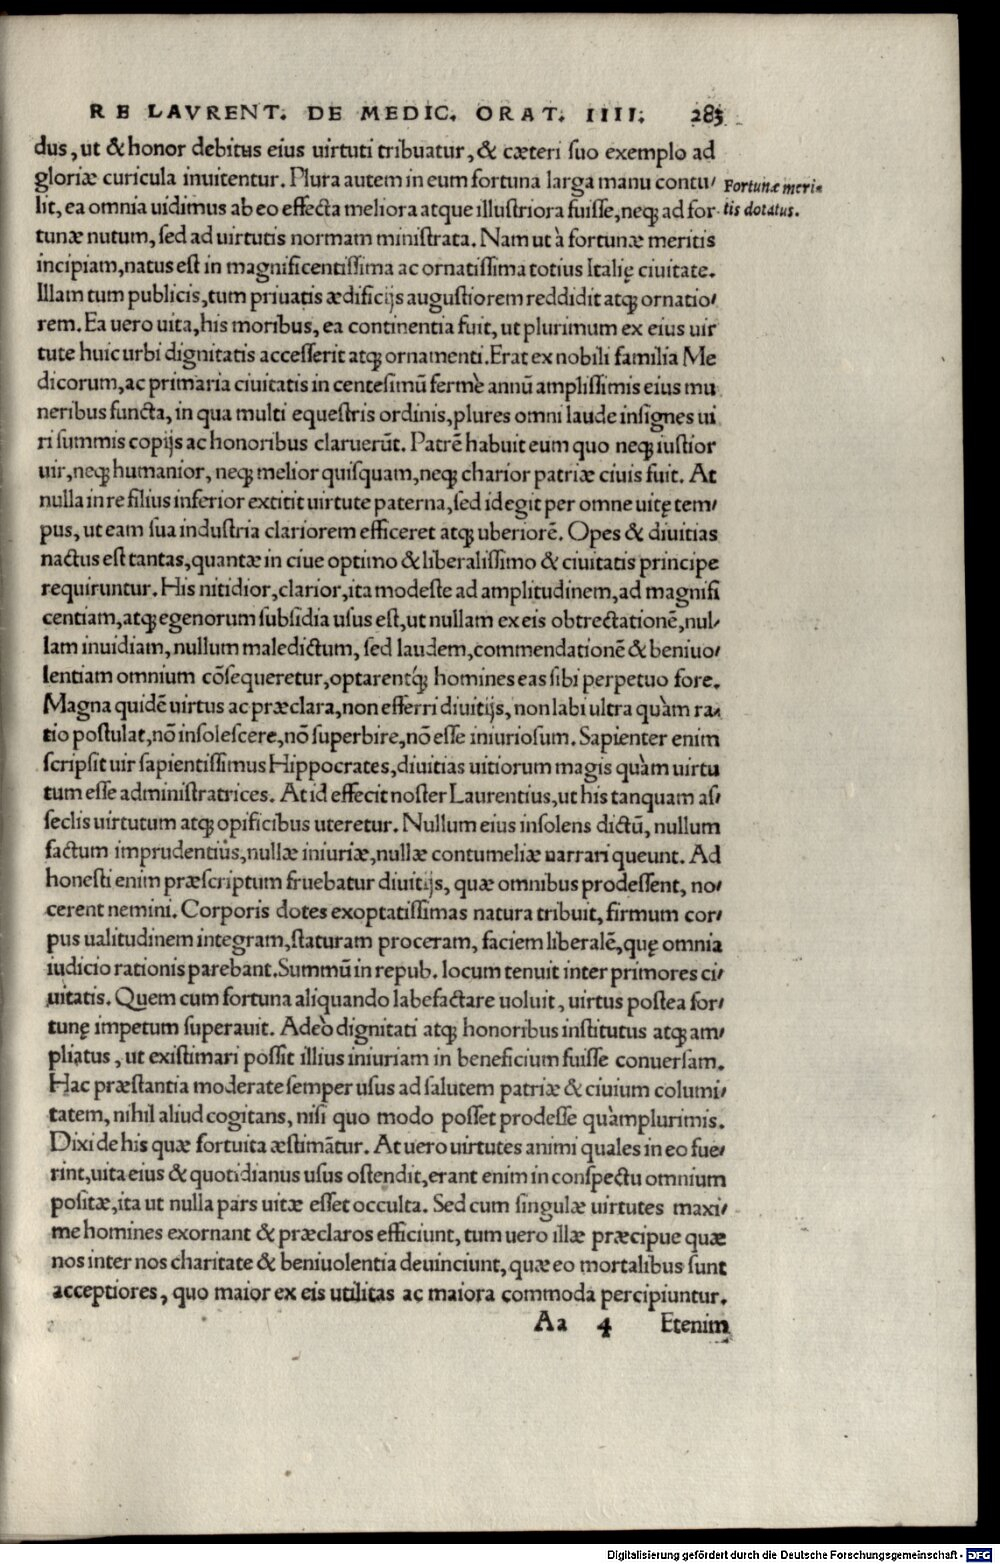 RE LAVRENT. DE MEDIC. ORAT. IIII. 283
dus, ut & honor debitus eius uirtuti tribuatur, & cæteri suo exemplo ad
gloriæ curicula inuitentur. Plura autem in eum fortuna larga manu contu/
Fortunæ meri=
lit, ea omnia uidimus ab eo effecta meliora atque illustriora fuisse, neq; ad for-
tis dotatus.
tunæ nutum, sed ad uirtutis normam ministrata. Nam ut à fortunæ meritis
incipiam, natus est in magnificentissima ac ornatissima totius Italię ciuitate.
Illam tum publicis, tum priuatis ædificijs augustiorem reddidit atq; ornatio/
rem. Ea uero uita, his moribus, ea continentia fuit, ut plurimum ex eius uir
tute huic urbi dignitatis accesserit atq; ornamenti. Erat ex nobili familia Me
dicorum, ac primaria ciuitatis in centesimū fermè annū amplissimis eius mu
neribus functa, in qua multi equestris ordinis, plures omni laude insignes ui
ri summis copijs ac honoribus claruerūt. Patrē habuit eum quo neq; iustior
uir, neq; humanior, neq; melior quisquam, neq; charior patriæ ciuis fuit. At
nulla in re filius inferior extitit uirtute paterna, sed id egit per omne uitę tem/
pus, ut eam sua industria clariorem efficeret atq; uberiorē. Opes & diuitias
nactus est tantas, quantæ in ciue optimo & liberalissimo & ciuitatis principe
requiruntur. His nitidior, clarior, ita modeste ad amplitudinem, ad magnifi
centiam, atq; egenorum subsidia usus est, ut nullam ex eis obtrectationē, nul/
lam inuidiam, nullum maledictum, sed laudem, commendationē & beniuo/
lentiam omnium cōsequeretur, optarentq́; homines eas sibi perpetuo fore.
Magna quidē uirtus ac præclara, non efferri diuitijs, non labi ultra quàm ra/
tio postulat, nō insolescere, nō superbire, nō esse iniuriosum. Sapienter enim
scripsit uir sapientissimus Hippocrates, diuitias uitiorum magis quàm uirtu
tum esse administratrices. At id effecit noster Laurentius, ut his tanquam as/
seclis uirtutum atq; opificibus uteretur. Nullum eius insolens dictū, nullum
factum imprudentius, nullæ iniuriæ, nullæ contumeliæ narrari queunt. Ad
honesti enim præscriptum fruebatur diuitijs, quæ omnibus prodessent, no/
cerent nemini. Corporis dotes exoptatissimas natura tribuit, firmum cor/
pus ualitudinem integram, staturam proceram, faciem liberalē, quę omnia
iudicio rationis parebant. Summū in repub. locum tenuit inter primores ci/
uitatis. Quem cum fortuna aliquando labefactare uoluit, uirtus postea for/
tunę impetum superauit. Adeò dignitati atq; honoribus institutus atq; am/
pliatus, ut existimari possit illius iniuriam in beneficium fuisse conuersam.
Hac præstantia moderate semper usus ad salutem patriæ & ciuium columi/
tatem, nihil aliud cogitans, nisi quo modo posset prodesse quàmplurimis.
Dixi de his quæ fortuita æstimātur. At uero uirtutes animi quales in eo fue/
rint, uita eius & quotidianus usus ostendit, erant enim in conspectu omnium
positæ, ita ut nulla pars uitæ esset occulta. Sed cum singulæ uirtutes maxi/
me homines exornant & præclaros efficiunt, tum uero illæ præcipue quæ
nos inter nos charitate & beniuolentia deuinciunt, quæ eo mortalibus sunt
acceptiores, quo maior ex eis utilitas ac maiora commoda percipiuntur.
Aa 4 Etenim
Digitalisierung gefördert durch die Deutsche Forschungsgemeinschaft - DFG